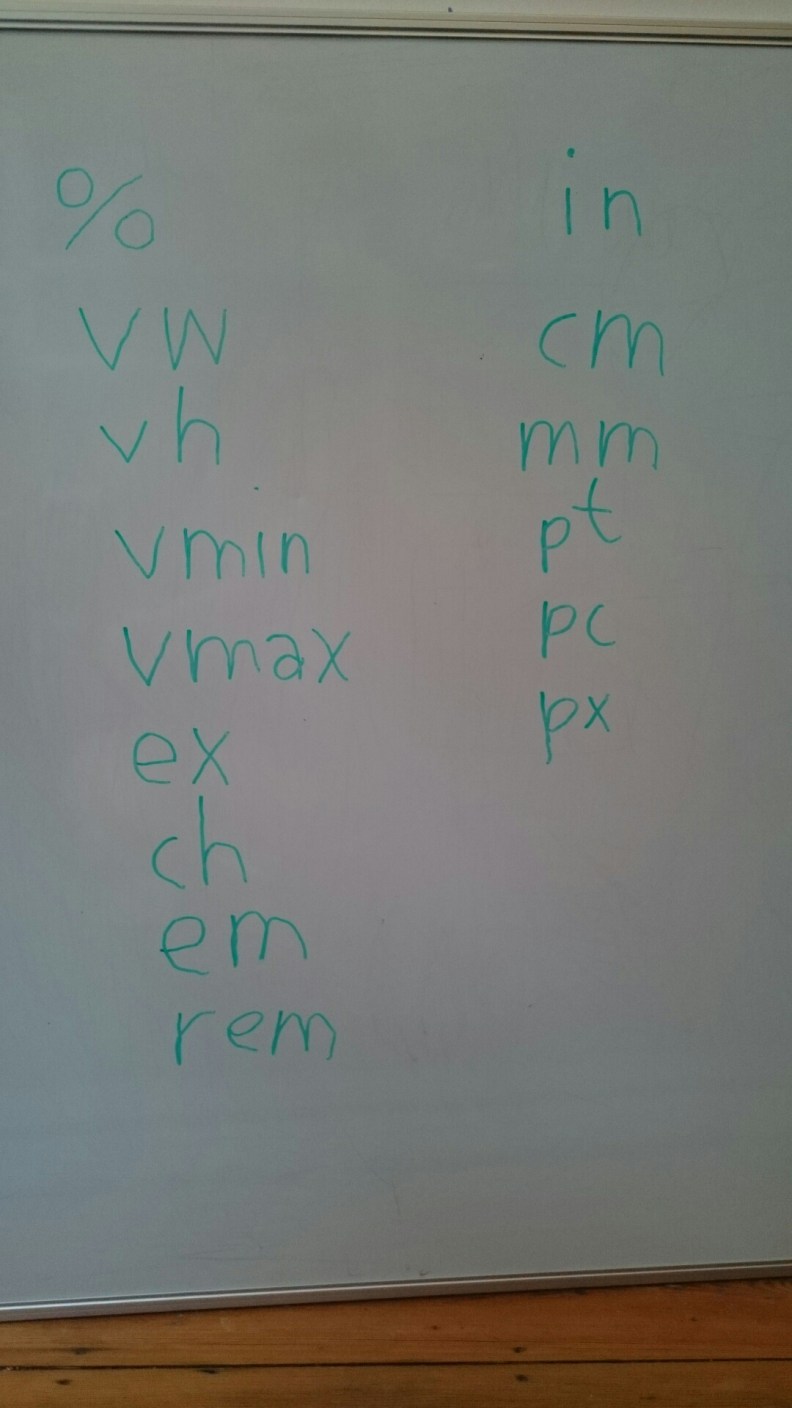 %
vw
vh
vmin
vmax
ex
ch
em
rem
in
cm
mm
pt
pc
px